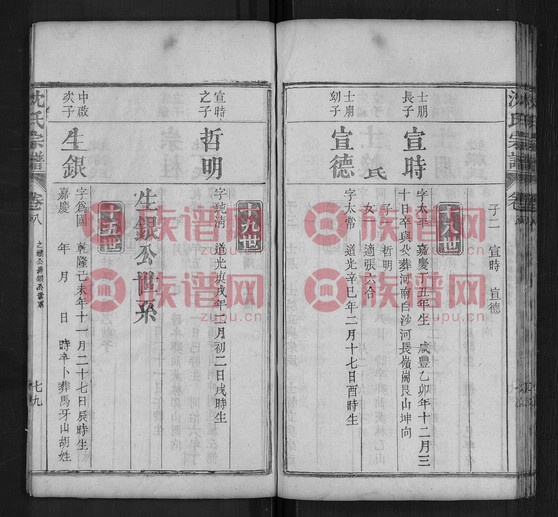 子二 宣時 宣德
十八世
士朋長子 宣時
字太平 嘉慶十五年生 咸豐乙卯年十二月三
十日辛與女葬河南白沙河長嶺崗艮山坤向
氏
子 哲明
女一 適張六合
士朋幼子 宣德
字太常 道光辛巳年二月十七日酉時生
沈氏宗譜
十九世
宣時之子 哲明
道光庚戌年二月初二日戌時生
生銀公世系
十五世
中啟次子 生銀
字為國 乾隆己未年十一月二十七日辰時生
嘉慶 年 月 日 時卒卜葬馬牙山胡姓
沈氏宗譜
卷八
七九
族谱网